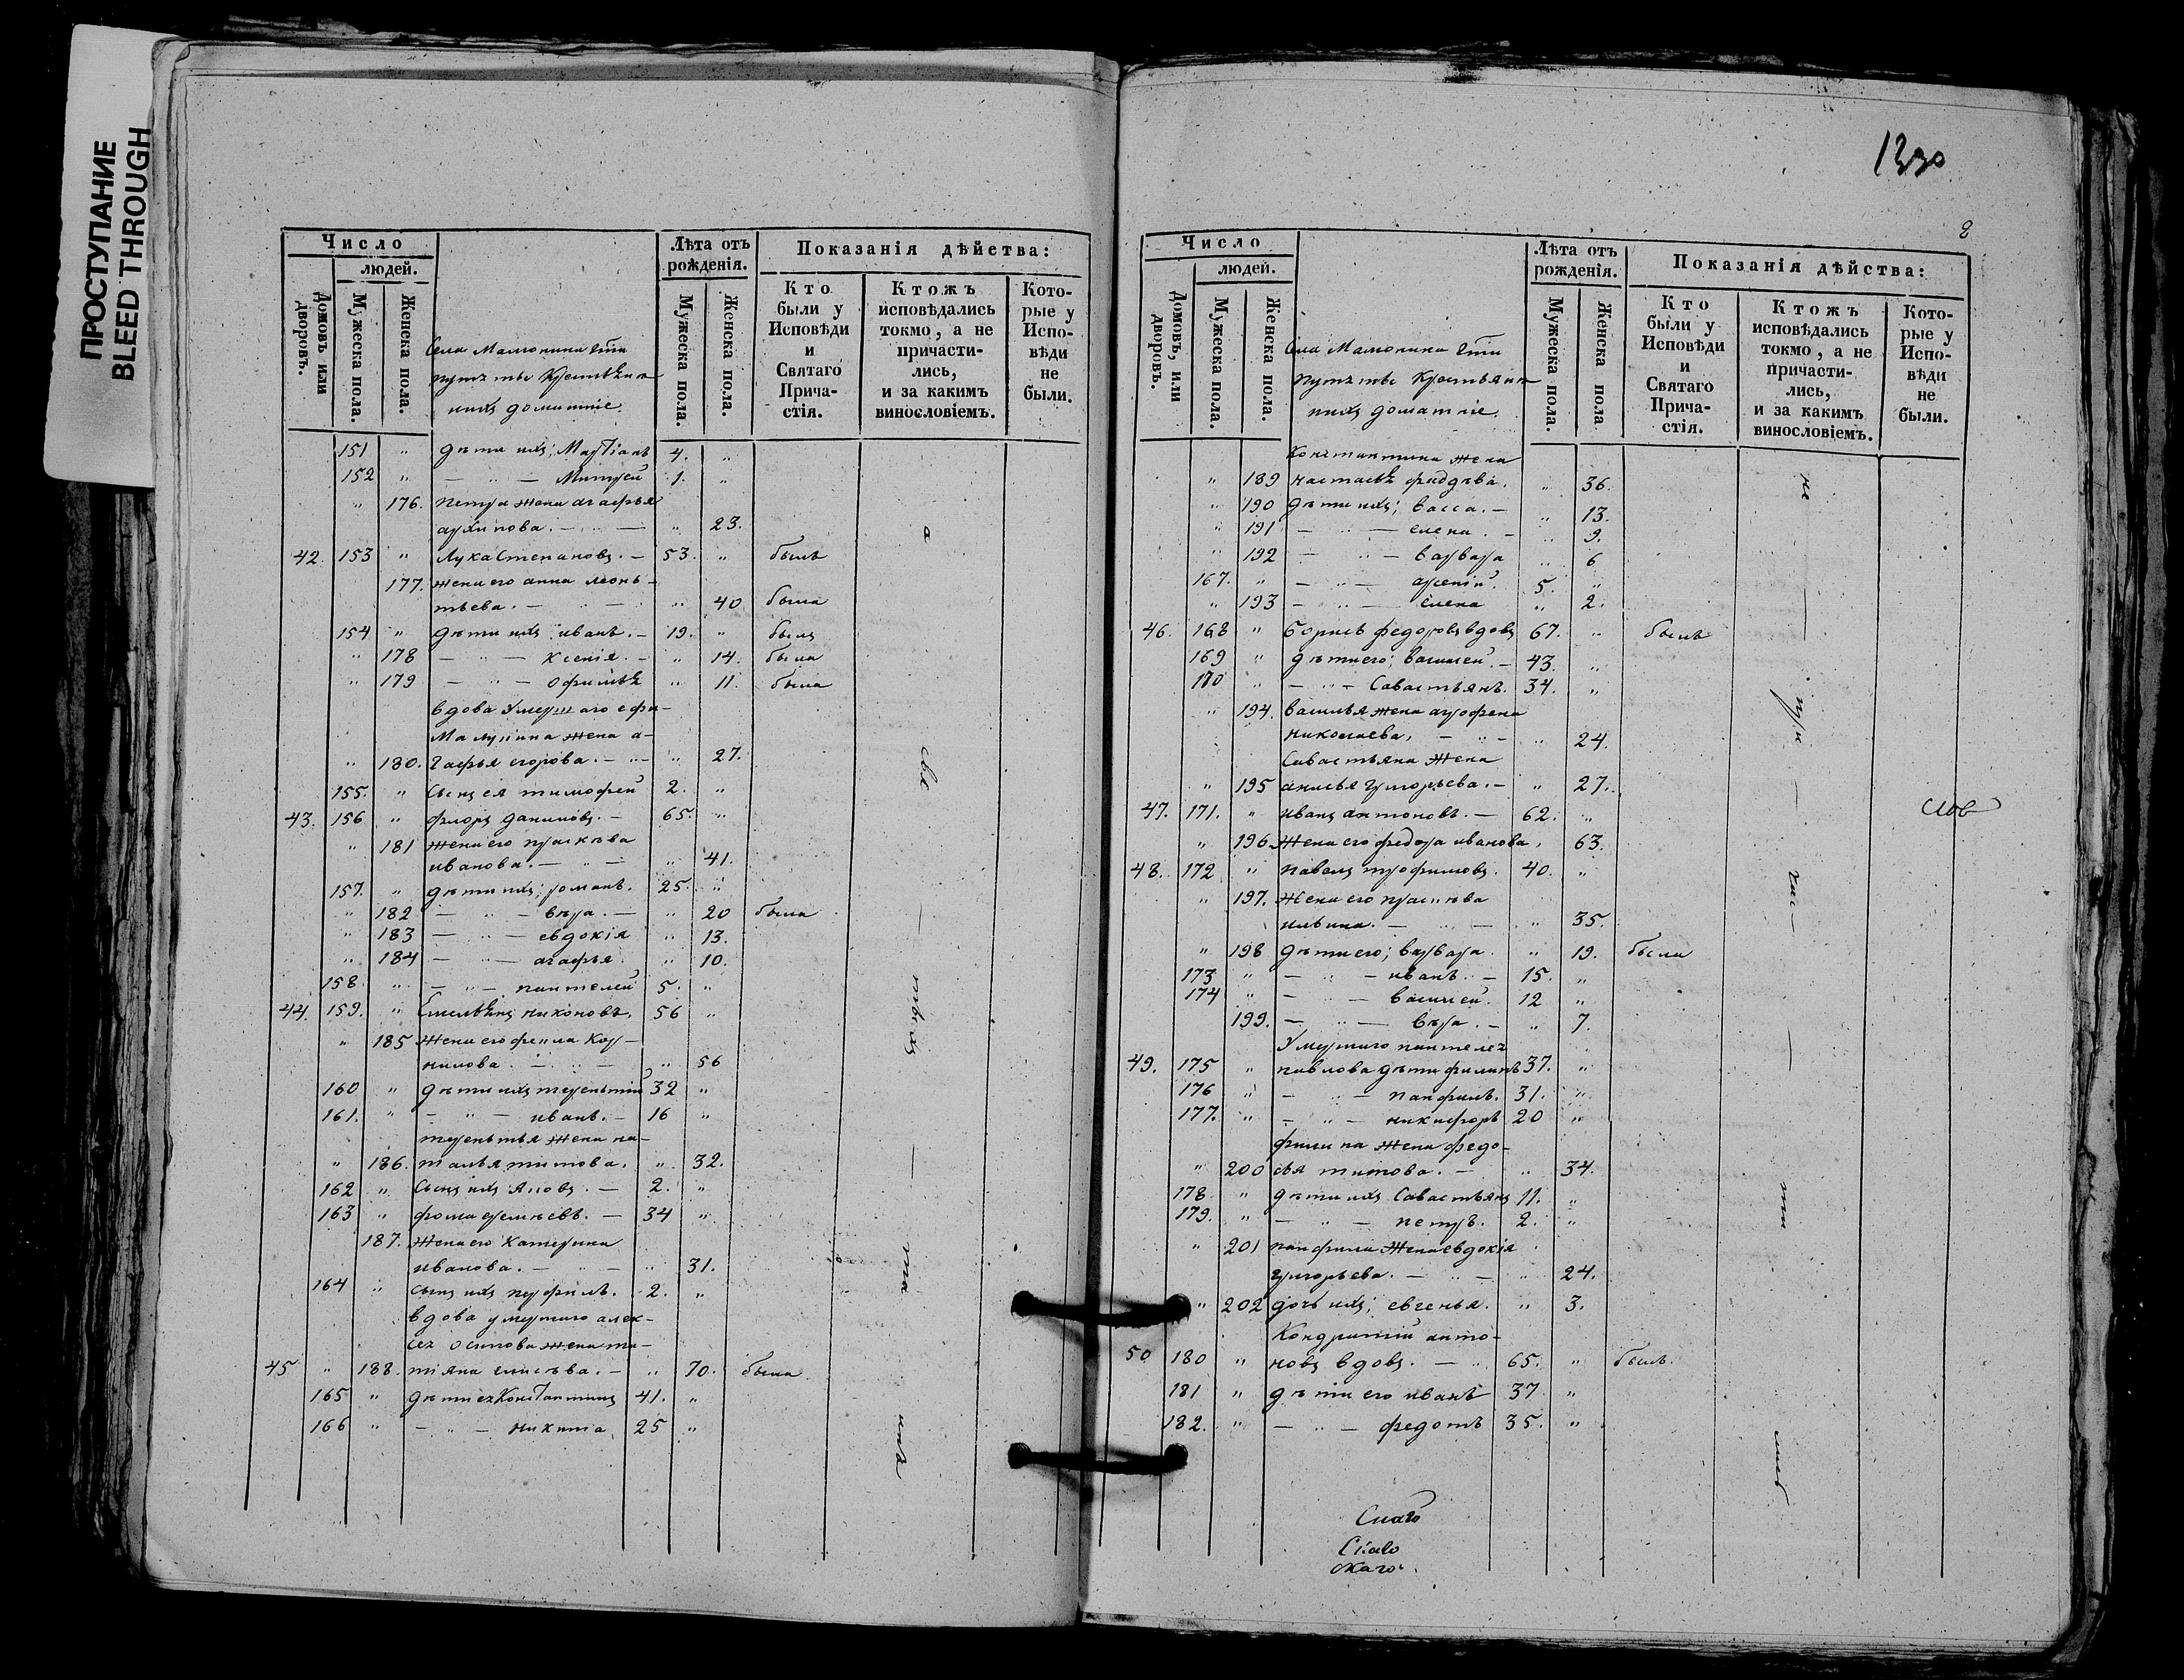 ПРОСТУПАНИЕ
BLEED THROUGH
Число
людей.
Домовъ или дворовъ.
Мужеска пола.
Женска пола.
Лѣта отъ рожденія.
Мужеска пола.
Женска пола.
Показанія дѣйства:
Кто были у Исповѣди и Святаго Прича-стія.
Ктожъ исповѣдались токмо, а не причасти-лись, и за какимъ винословіемъ.
Кото-рые у Испо-вѣди не были.
151 " дѣти ихъ; 4. "
152 " — " — 1. "
" 176. петра жена агафья
архипова. — " — " 23.
42. 153 " Лука Степановъ. — 53. " былъ
177. жена его анна леонь-
тьева. — " — " 40 была
154 " дѣти ихъ иванъ. — 19. " былъ
" 178 — " — ксенія. — " 14. была
" 179 — " — " 11. была
вдова умершаго
жена а-
" 180. гафья егорова. — " — " 27.
155. " сынъ ея тимофей 2. "
43. 156 " флоръ даниловъ. — 65. "
" 181 жена его
иванова. — " — " 41.
157. " дѣти ихъ; романъ. 25. "
" 182 — " — вѣра. — " 20 была
" 183 — " — евдокія " 13.
" 184 — " — агафья. " 10.
158. " — " — пантелей 5. "
44. 159. " никоновъ. 56 "
" 185 жена его фекла кор-
нилова. — " — " 56
160 " дѣти ихъ терентій 32 "
161. " — " — иванъ. — 16 "
терентья жена на-
" 186. талья титова. " 32.
162 " сынъ ихъ яковъ. — 2. "
163 " фома еремѣевъ. — 34 "
187. жена его катерина
иванова. — " — " 31.
164 " сынъ ихъ 2. "
вдова умершаго алек-
сея осипова жена та-
45 " 188. тіяна елисѣева. — " 70. была
165 " дѣти ея Константинъ 41. "
166 " — " — никита 25 "
2
Число
людей.
Домовъ, или дворовъ.
Мужеска пола.
Женска пола.
Лѣта отъ рожденія.
Мужеска пола.
Женска пола
Показанія дѣйства:
Кто были у Исповѣди и Святаго Прича-стія.
Ктожъ исповѣдались токмо, а не причасти-лись, и за какимъ винословіемъ.
Кото-рые у Испо-вѣди не были.
Константина жена
" 189 " 36.
" 190 дѣти ихъ; васса. — " 13.
" 191 — " — елена. — " 9.
" 192 — " — варвара " 6
167. " — " — арсеній. 5. "
" 193 — " — елена " 2.
46. 168 " борисъ федоровъ вдовъ 67. " былъ
169 " дѣти его; василей. — 43. "
170 " — " — Савастьянъ. 34. "
" 194. василья жена агрофена
николаева. — " — " 24.
Савастьяна жена
" 195 анисья григорьева. — " 27.
47. 171. " иванъ антоновъ. — 62. "
" 196. жена его федора иванова. 63.
48. 172 " павелъ трофимовъ. 40. "
" 197. жена его
ильина. — " — " 35.
" 198 дѣти его; варвара. " 19. была
173 " — " — иванъ. — 15. "
174 " — " — василей. 12 "
199. — " — вѣра. — " 7.
умершаго пантелея
49. 175 " павлова дѣти филипъ 37. "
176 " — " — панфилъ. 31. "
177. " — " — никифоръ 20 "
филипа жена федо-
" 200 сья титова. — " 34.
178 " дѣти ихъ Савастьянъ 11. "
179. " — " — петръ. 2. "
" 201 панфила жена евдокія
григорьева. — " — " 24.
" 202 дочь ихъ; евгенья. " 3.
Кондратій анто-
50 180 " новъ вдовъ. — " 65. " былъ.
181 " дѣти его иванъ 37 "
182. " — " — федотъ 35. "